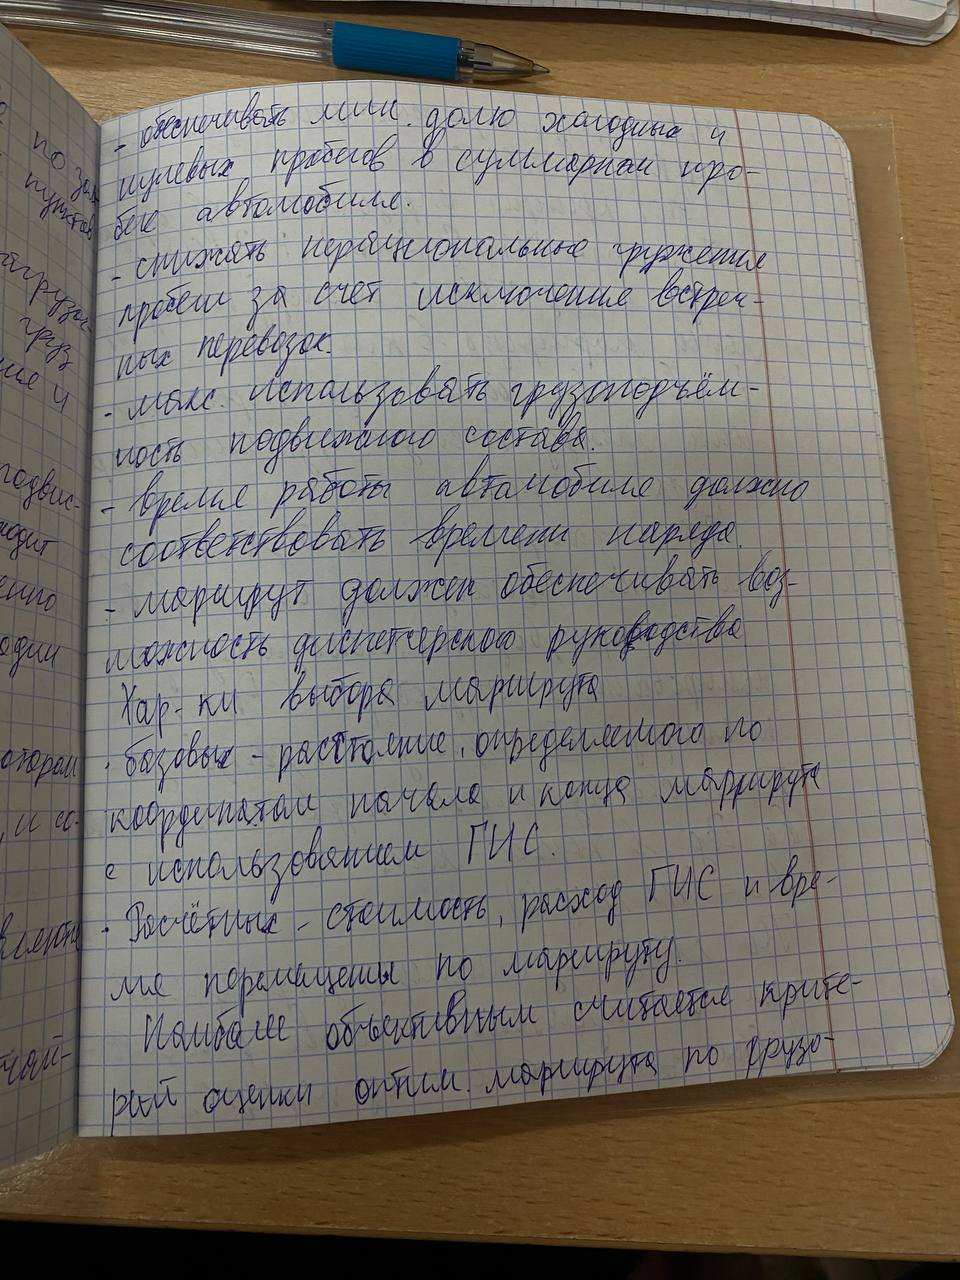 - обеспечивать мин. долю холодных и
нулевых пробегов в суммарном про-
беге автомобиля.
- снижать нерациональные гружения
пробеги за счет исключения встреч-
ных перевозок.
- макс. использовать грузоподъём-
ность подвижного состава.
- время работы автомобиля должно
соответствовать времени наряда.
- маршрут должен обеспечивать воз-
можность диспетчерского руководства
Хар-ки выбора маршрута
· базовых - расстояние, определяемого по
координатам начала и конца маршрута
с использованием ГИС.
· Расчётных - стоимость, расход ГИС и вре-
мя перемещены по маршруту.
Наиболее объективным считается крите-
рий оценки оптим. маршрута по грузо-